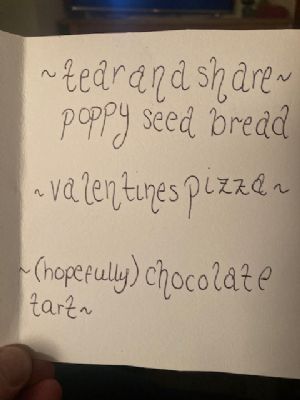 ~tear and share~
poppy seed bread
~valentines pizza~
~(hopefully) chocolate
tart~